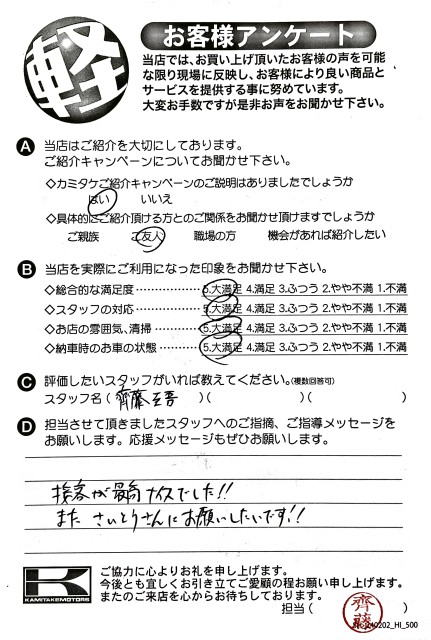 軽
お客様アンケート
当店では、お買い上げ頂いたお客様の声を可能
な限り現場に反映し、お客様により良い商品と
サービスを提供する事に努めています。
大変お手数ですが是非お声をお聞かせ下さい。
A 当店はご紹介を大切にしております。
ご紹介キャンペーンについてお聞かせ下さい。
◇カミタケご紹介キャンペーンのご説明はありましたでしょうか
はい いいえ
◇具体的にご紹介頂ける方とのご関係をお聞かせ頂けますでしょうか
ご親族 ご友人 職場の方 機会があれば紹介したい
B 当店を実際にご利用になった印象をお聞かせ下さい。
◇総合的な満足度 ・・・・・・・・・・・・ 5.大満足 4.満足 3.ふつう 2.やや不満 1.不満
◇スタッフの対応 ・・・・・・・・・・・・ 5.大満足 4.満足 3.ふつう 2.やや不満 1.不満
◇お店の雰囲気、清掃 ・・・・・・・・ 5.大満足 4.満足 3.ふつう 2.やや不満 1.不満
◇納車時のお車の状態 ・・・・・・・ 5.大満足 4.満足 3.ふつう 2.やや不満 1.不満
C 評価したいスタッフがいれば教えてください。(複数回答可)
スタッフ名 ( 齊藤 )( )( )
D 担当させて頂きましたスタッフへのご指摘、ご指導メッセージを
お願いします。応援メッセージもぜひお願いします。
接客が最高ナイスでした!!
また さいとうさんにお願いしたいです!!
KAMITAKEMOTORS
ご協力に心よりお礼を申し上げます。
今後とも宜しくお引き立てご愛顧の程お願い申し上げます。
またのご来店を心からお待ちしております。
担当 ( 齊藤 )
240202_HI_500